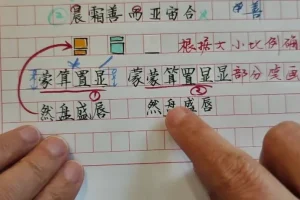 ② 晨霜善而亚宙合
根据大小比例确
蒙算置显 蒙蒙算置显显部分变画
① ②
然盘盛唇 然盘盛唇